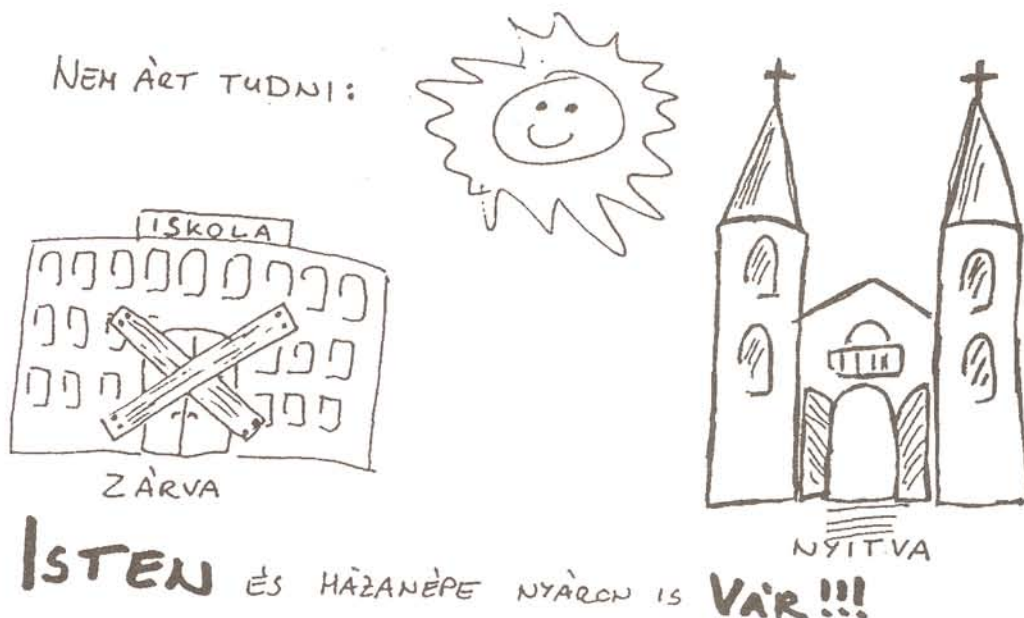 NEM ÁRT TUDNI:
ISKOLA
ZÁRVA
NYITVA
ISTEN ÉS HÁZANÉPE NYÁRON IS VÁR!!!